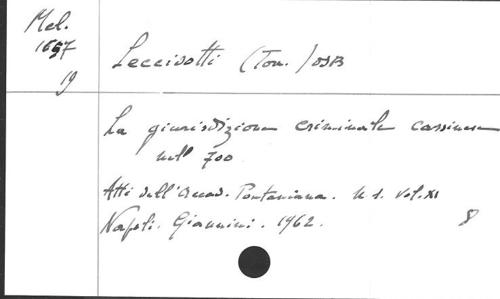 Mel.
1697
19
Leccisotti (Tom.) OSB
La giurisdizione criminale cassinese
nell' 700
Atti dell'Accad. Pontaniana. N S. Vol. XI
Napoli. Giannini. 1962.
8